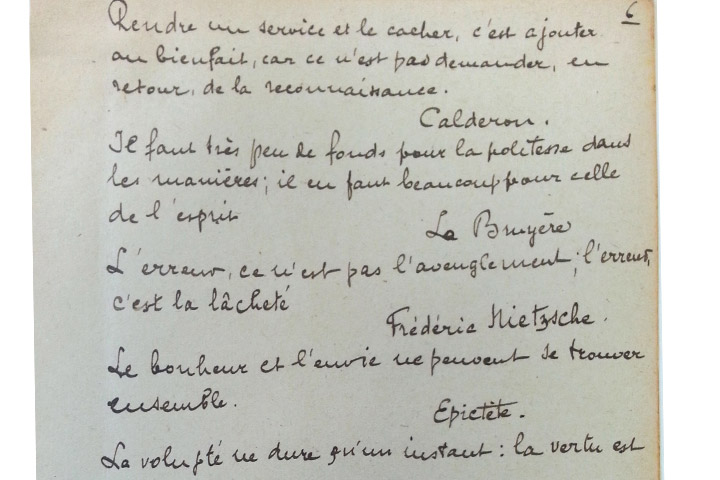 6
Rendre un service et le cacher, c'est ajouter
au bienfait, car ce n'est pas demander, en
retour, de la reconnaissance.
Calderon.
Il faut très peu de fonds pour la politesse dans
les manières; il en faut beaucoup pour celle
de l'esprit
La Bruyère
L'erreur, ce n'est pas l'aveuglement; l'erreur,
c'est la lâcheté
Frédéric Nietzsche.
Le bonheur et l'envie ne peuvent se trouver
ensemble.
Epictète.
La volupté ne dure qu'un instant: la vertu est